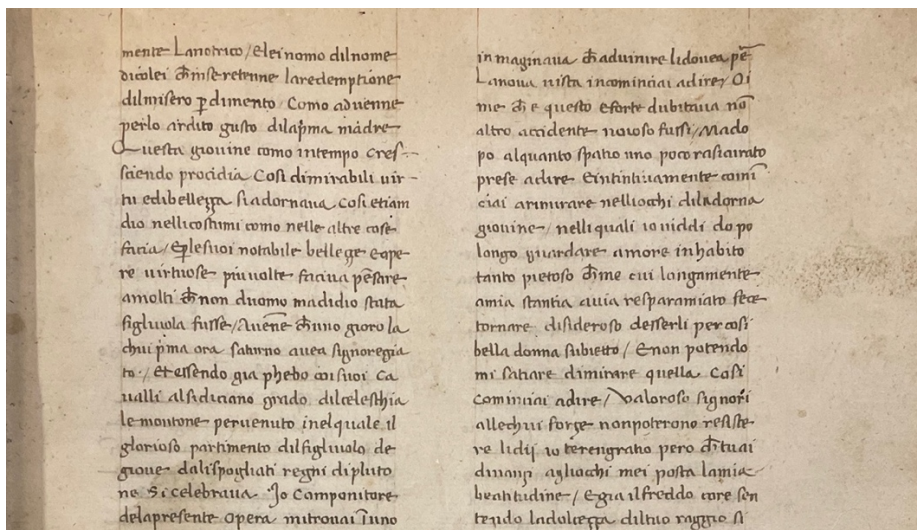 mente Lanotrico / Elei nomo dilnome
dicolei ch̄ inse retenne laredemptione
dilmisero ꝑdimento Como advenne
perlo ardito gusto dilap̄ma madre
Questa giovine como intempo Cres-
sciendo procidia Cosi dimirabili vir-
tu edibellezza siadornava Cosi etiam
dio nellicostumi como nelle altre cose
facia / Eꝑlesuoi notabile bellezze eope
re virtuose piuvolte faciva pēsare
amolti ch̄ non duomo madidio stata
figluola fusse / Avēne ch̄ uno gioro la
chui p̄ma ora saturno avea signoregia
to · / Et essendo gia phebo coisuoi Ca
valli alsidiciano grado dilceleschia
le montone pervenuto inelquale il
glorioso partimento dilfigluolo de
giove dalispogliati regni dipluto
ne Si celebrava Io Componitore
delapresente opera mitrovai ī uno
in maginava ch̄ advinire lidovea pē
Lanova vista incominciai adire / Oi
me ch̄ e questo eforte dubitava nō
altro accidente noioso fussi / Mado
po alquanto spatio uno poco rasicurato
prese adire Eintintivamente comī
ciai arimirare nelliochi diladorna
giovine / nelli quali io viddi dopo
longo guardare amore inhabito
tanto pietoso ch̄ me cui longamente
amia stantia avia resparamiato fece
tornare disideroso desserli per cosi
bella donna subietto / Enon potendo
mi satiare dimirare quella Cosi
Cominciai adire / Valoroso signori
allechui forze nonpoterono resiste
re lidij io terengratio pero ch̄ tuai
dinanzi agliochi mei posta lamia
beatitudine / Egia ilfreddo core sen
tendo ladolcezza diltuo raggio si